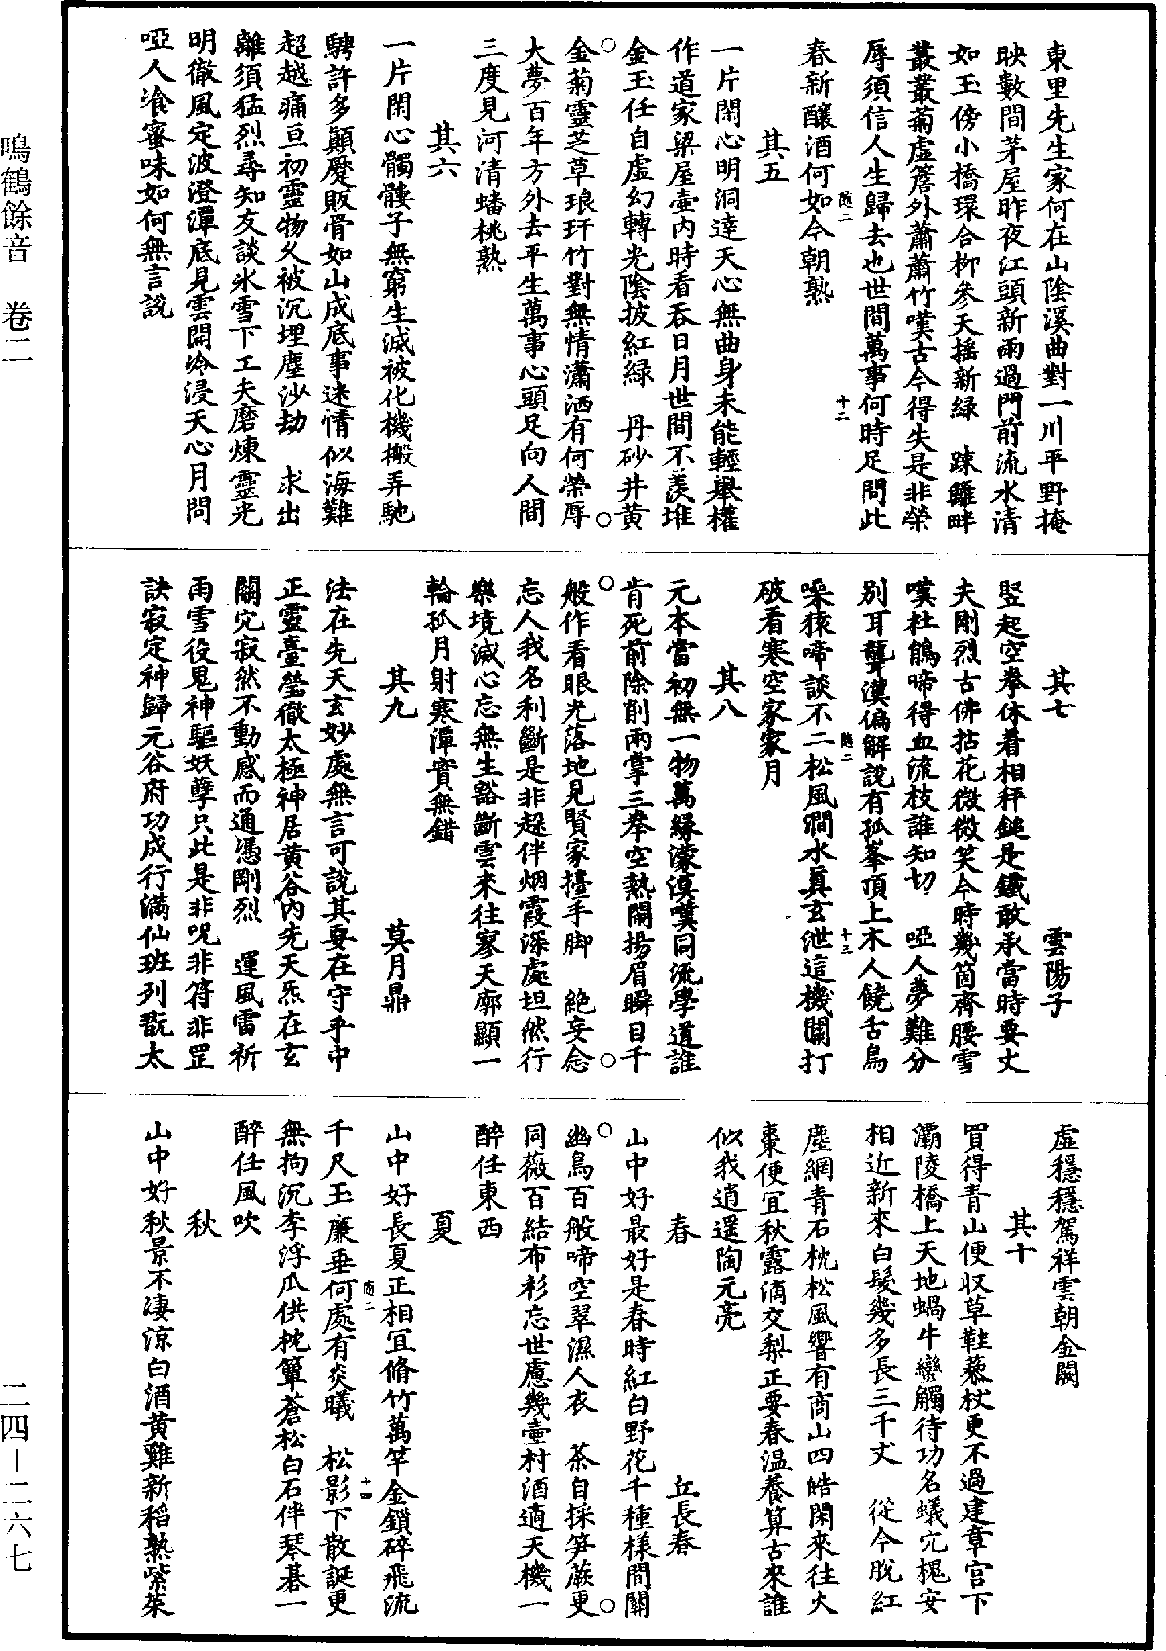 鳴鶴餘音　卷二
東里先生家何在山陰溪曲對一川平野掩
映數間茅屋昨夜江頭新雨過門前流水清
如玉傍小橋環合柳參天搖新綠　踈籬畔
叢叢菊虛簷外蕭蕭竹嘆古今得失是非榮
辱須信人生歸去也世間萬事何時足問此
春新釀酒何如今朝熟
隨二
十二
其五
一片閑心明洞達天心無曲身未能輕舉權
作道家梁屋壷內時看吞日月世間不羨堆
金玉任自虛幻轉光陰披紅綠　丹砂井黃
金菊靈芝草琅玕竹對無情瀟洒有何榮辱
大夢百年方外去平生萬事心頭足向人間
三度見河清蟠桃熟
其六
一片閑心髑髏子無窮生滅被化機搬弄馳
騁許多顛蹷販骨如山成底事迷情似海難
超越痛亘初靈物久被沉埋塵沙劫　求出
離須猛烈尋知友談氷雪下工夫磨煉靈光
明徹風定波澄潭底見雲開冷浸天心月問
啞人飡蜜味如何無言說
其七　雲陽子
竪起空拳休着相秤鎚是鐵敢承當時要丈
夫剛烈古佛拈花微微笑今時幾箇齊腰雪
嘆杜鵑啼得血流枝誰知切　啞人夢難分
別耳聾漢偏解說有孤峯頂上木人饒舌鳥
噪猿啼談不二松風澗水眞玄泄這機關打
破看寒空家家月
隨二
十三
其八
元本當初無一物萬緣濛漠嘆同流學道誰
肯死前除削兩掌三拳空熱鬧揚眉瞬目千
般作看眼光落地見賢家擡手脚　絶妄念
忘人我名利斷是非趓伴烟霞深處坦然行
樂境滅心忘無生豁斷雲來往寥天廓顯一
輪孤月射寒潭實無錯
其九　莫月鼎
法在先天玄妙處無言可說其要在守乎中
正靈臺瑩徹太極神居黃谷內先天炁在玄
關穴寂然不動感而通憑剛烈　運風雷祈
雨雪役鬼神驅妖孽只此是非呪非符非罡
訣寂定神歸元谷府功成行滿仙班列翫太
虛穩穩駕祥雲朝金闕
其十
買得青山便収草鞋藜杖更不過建章宫下
灞陵橋上天地蝸牛蠻觸待功名蟻穴槐安
相近新來白髮幾多長三千丈　從今脫紅
塵網青石枕松風響有商山四皓閑來往大
棗便宜秋露滴交梨正要春温養算古來誰
似我逍遥陶元亮
春　丘長春
山中好最好是春時紅白野花千種樣間關
幽鳥百般啼空翠濕人衣　茶自採笋蕨更
同薇百結布衫忘世慮幾壷村酒適天機一
醉任東西
夏
山中好長夏正相宜脩竹萬竿金鎖碎飛流
千尺玉簾垂何處有炎曦　松影下散誕更
無拘沉李浮瓜供枕簟蒼松白石伴琴碁一
醉任風吹
隨二
十四
秋
山中好秋景不凄涼白酒黃雞新稻熟紫茱
二四—二六七